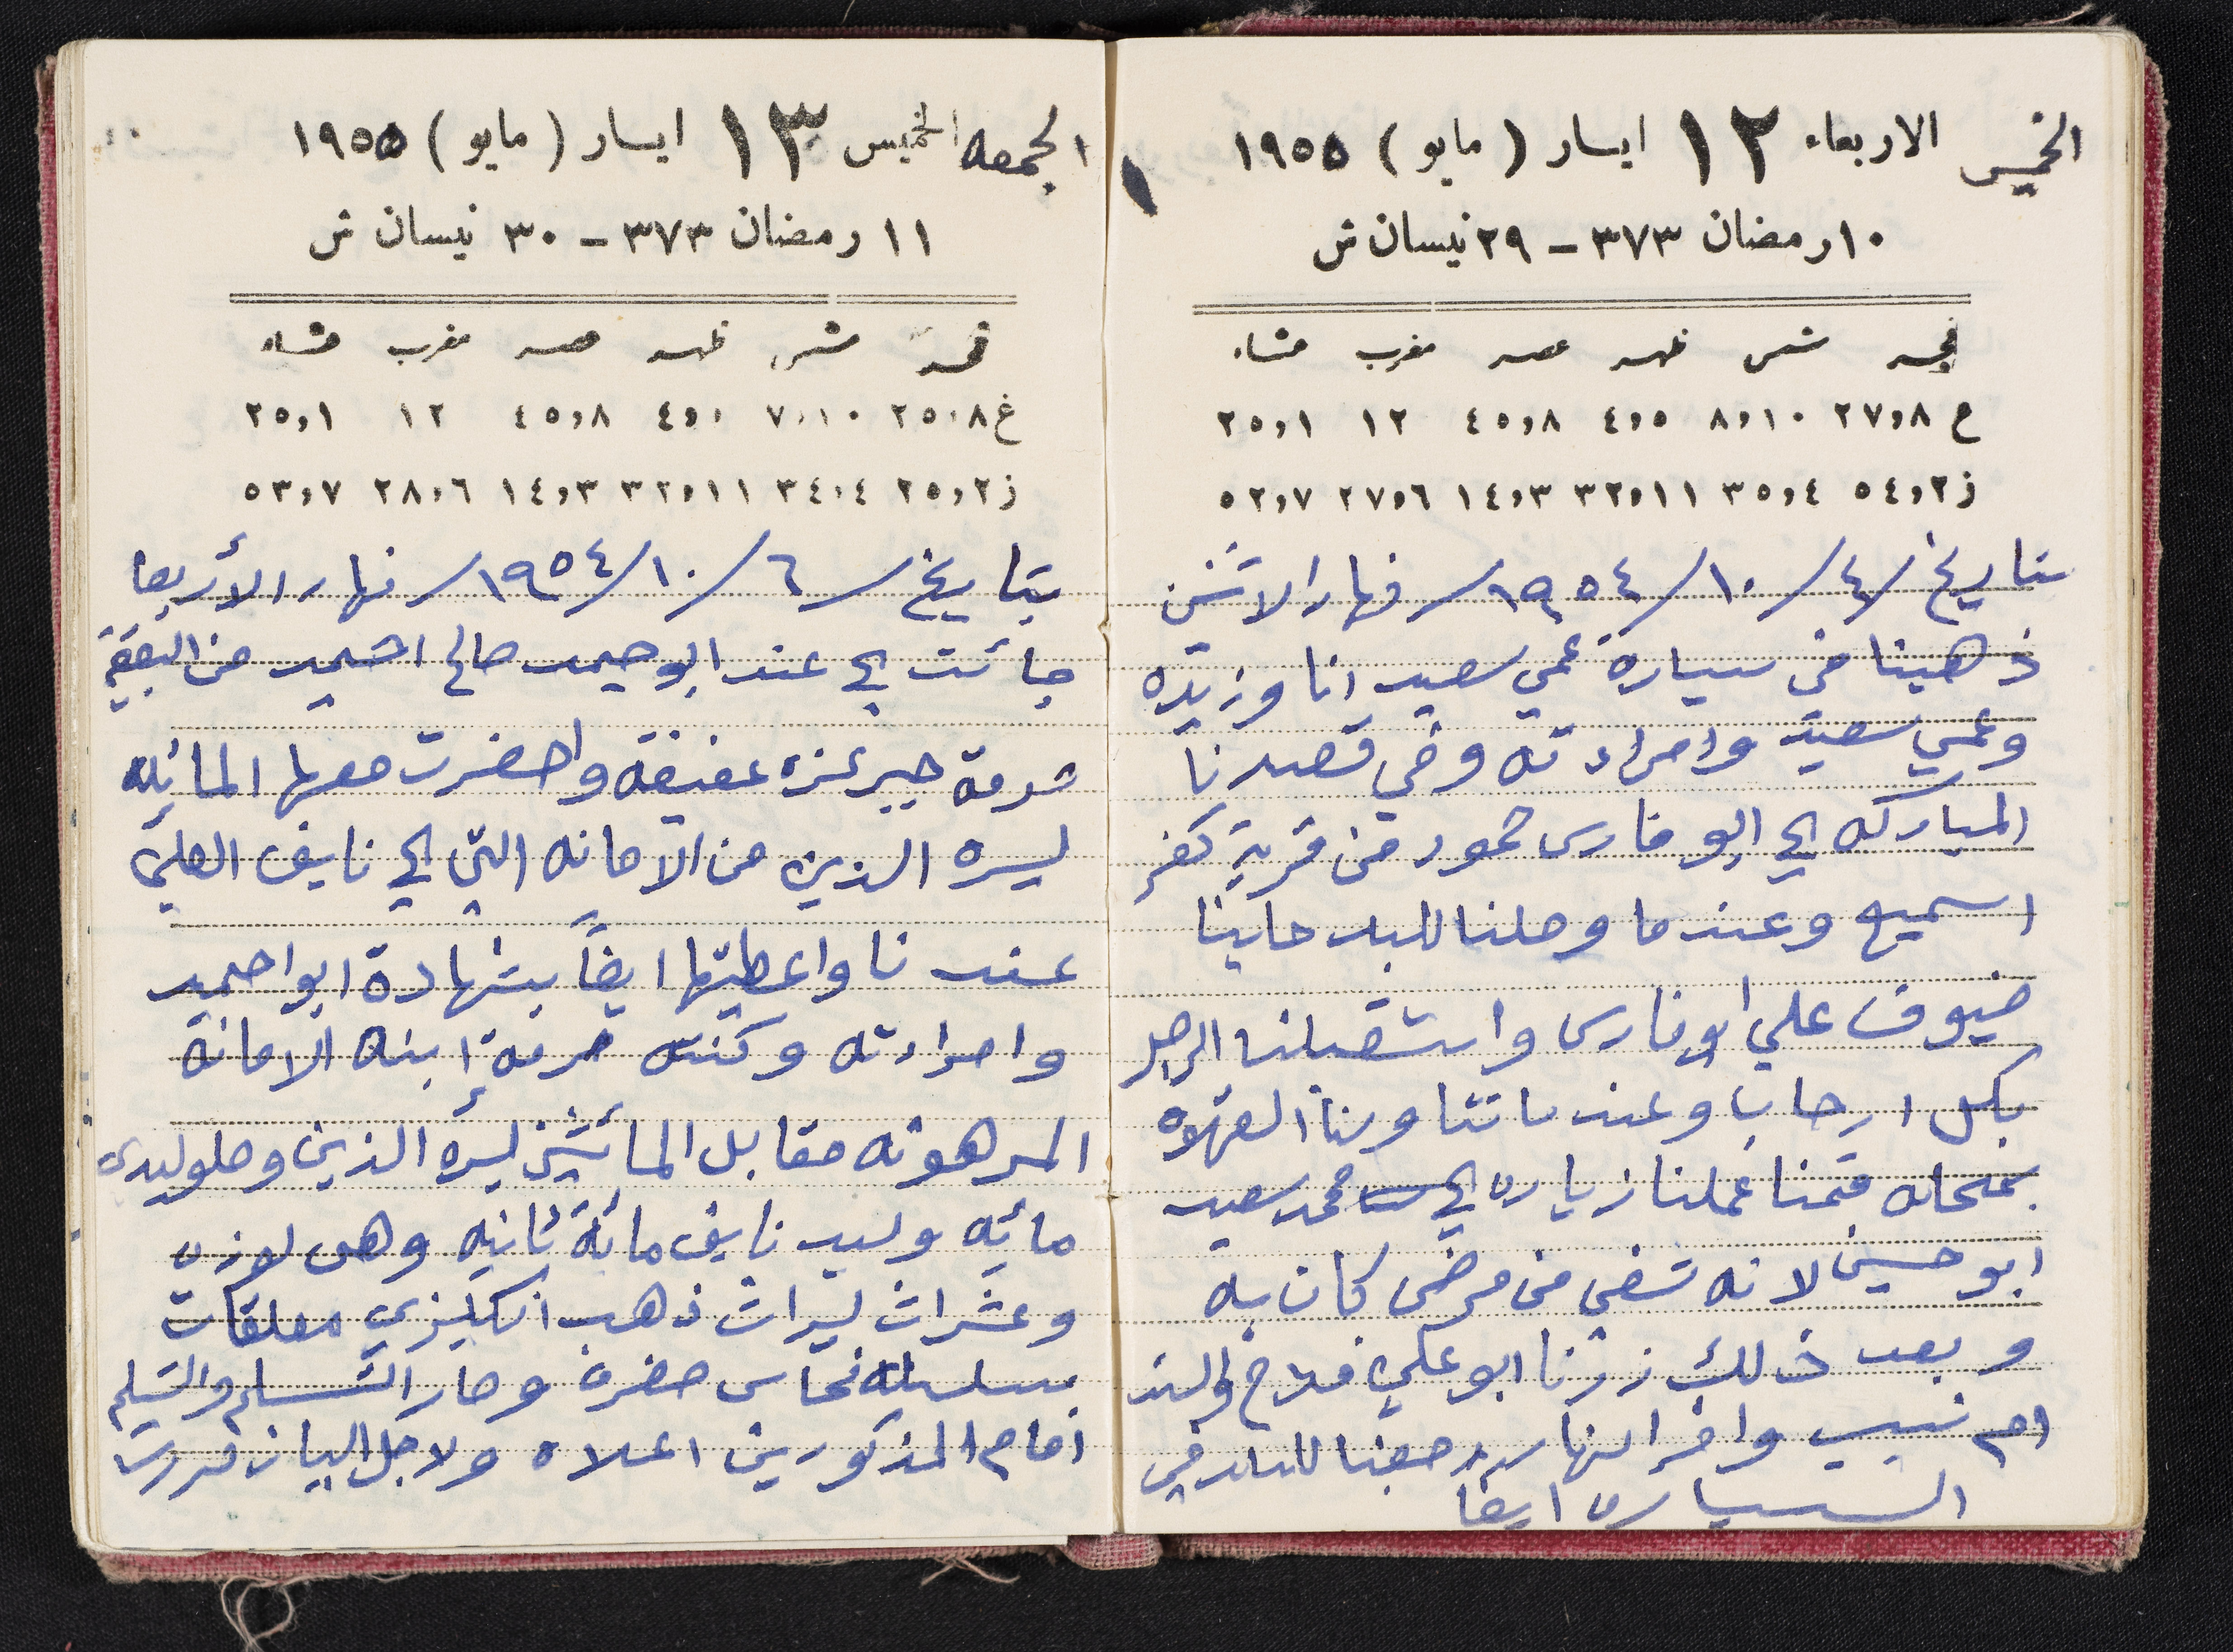 الخميس الاربعاء ١٢ ايار (مايو) ١٩٥٥
١٠ رمضان ٣٧٣ - ٢٩ نيسان ش
فجر شمس ظهر عصر مغرب عشاء
ع ٢٧،٨ ٨،١٠ ٤،٥ ٤٥،٨ ١٢ ٢٥،١
ز ٥٤،٢ ٣٥،٤ ٣٢،١١ ١٤،٣ ٢٧،٦ ٥٢،٧
بتاريخ /٤/١٠/١٩٥٤/ نهار الاثنين
ذهبنا في سيارة عمي سعيد انا وزيده
وعمي سعيد وامراءته وفي قصدنا
المباركه الى ابو فارس حمود من قرية كفر
اسميه وعندما وصلنا للبلد حلينا
ضيوف على ابو فارس واستقبلنا الرجل
بكل ارحاب وعندما تناولنا القهوه
بمحله قمنا عملنا زياره الى محمد سعيد
ابو حسين لانه شفي من مرض كان به
وبعد ذلك زرنا ابو علي فلاح والند
ام نسيب واخر النهار رجعنا للبلد في
السياره ايضا
الجمعه الخميس ١٣ ايار (مايو) ١٩٥٥
١١ رمضان ٣٧٣ - ٣٠ نيسان ش
فجر شمس ظهر عصر مغرب عشاء
غ ٢٥،٨ ٧،١٠ ٤،٠ ٤٥،٨ ١٢ ٢٥،١
ز ٢٥،٢ ٣٤،٤ ٣٢،١١ ١٤،٣ ٢٨،٦ ٥٣،٧
بتاريخ /٦/١٠/١٩٥٤/ نهار الأربعا
جائت الى عند ابو حميد صالح احميد من البقيعة
حرمة جبر عزه عفيفة واحضرت معها المائه
ليره الذين من الامانه التي الى نايف العلي
عندنا واعطيتها ايضاً بشهادة ابو احميد
وامراءته وكنته حرمة ابنه الامانة
المرهونه مقابل المائتين ليره الذين وصلو ليدى
مائه وليد نايف مائة ثانيه وهى لوزه
وعشرات ليرات ذهب انكليزي معلقات
بسلسله نحاس صفره وصار التسلم والتسليم
امام المذكورين اعلاه ولاجل البيان حررت